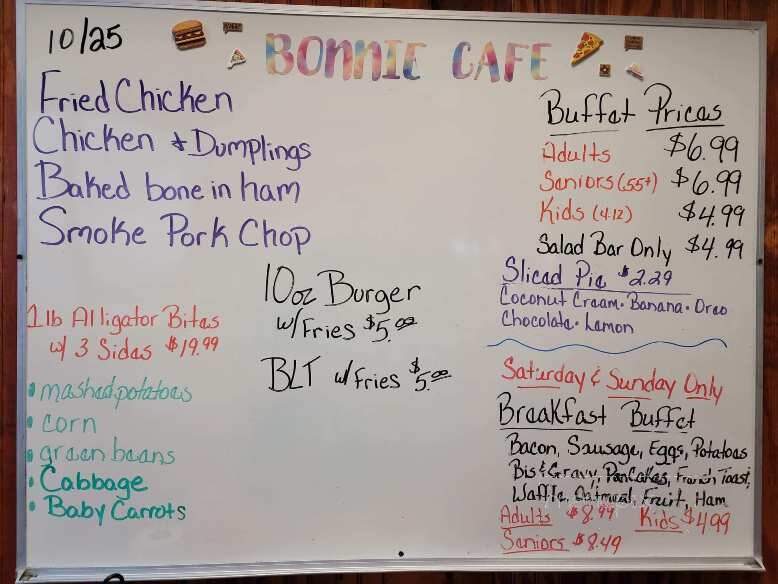 10/25
BONNIE CAFE
Fried Chicken
Chicken & Dumplings
Baked bone in ham
Smoke Pork Chop
1lb Alligator Bites
w/ 3 Sides $19.99
• mashed potatoes
• corn
• green beans
• Cabbage
• Baby Carrots
10oz Burger
w/Fries $5.00
BLT w/Fries $5.00
Buffet Prices
Adults $6.99
Seniors (55+) $6.99
Kids (4-12) $4.99
Salad Bar Only $4.99
Sliced Pie $2.29
Coconut Cream • Banana • Oreo
Chocolate • Lemon
Saturday & Sunday Only
Breakfast Buffet
Bacon, Sausage, Eggs, Potatoes
Bis & Gravy, Pancakes, French Toast,
Waffle, Oatmeal, Fruit, Ham
Adults $8.99 Kids $4.99
Seniors $8.49